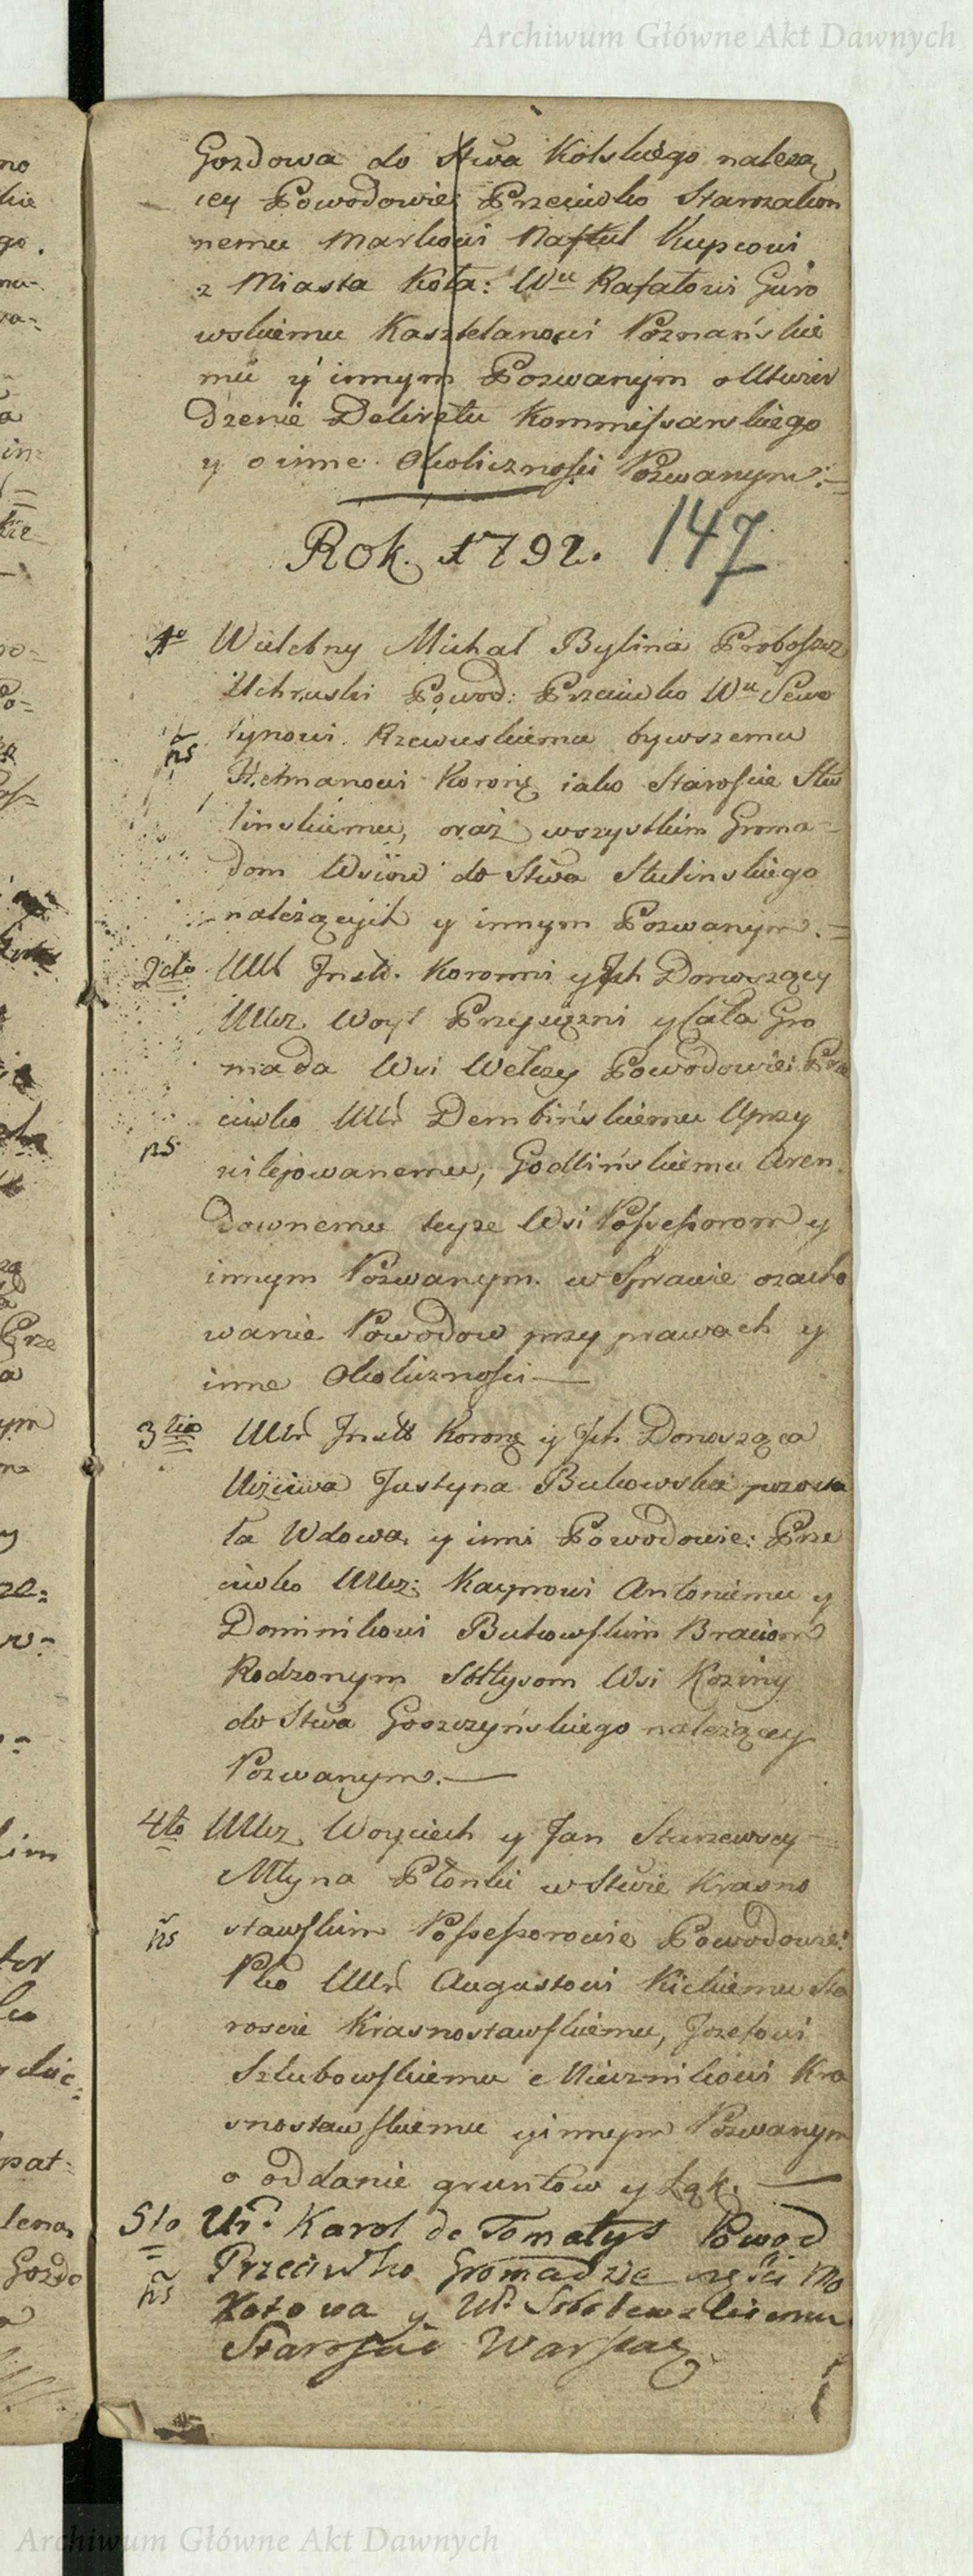 Archiwum Główne Akt Dawnych
Gozdowa do Stwa Kolskiego należą
cey Powodowie Przeciwko Starozakon
nemu Markowi Naftul Kupcowi
z Miasta Koła: Wu Rafałowi Guro
wskiemu Kasztelanowi Poznańskie
mu y innym Pozwanym o Utwier
dzenie Dekretu Kommissarskiego
y o inne Okoliczności Pozwanym:=
Rok. 1792. 147
1o Wielebny Michał Bylina Proboszcz
Uchruski Powod: Przeciwko Wu Sewe
rynowi Rzewuskiemu bywszemu
ns
Hetmanowi Koroñ iako Staroście Stu
linskiemu, oraz wszystkim Groma=
dom Wsiow do Stwa Stulinskiego
należących y innym Pozwanym.=
2do Ur Instr. Koronni y Jch Donoszący
Ucz. Woyt Przysężni y Cała Gro
mada Wsi Wełczy Powodowie: Prze
ciwko Ur Dembińskiemu Uprzy
ns
wilejowanemu, Godlińskiemu Aren
downemu teyże Wsi Possessorom y
innym Pozwanym. w Sprawie o zacho
wanie Powodow przy prawach y
inne Okoliczności —
3tio Ur Instr Koroñ y Jch Donosząca
Uczciwa Justyna Bukowska pozosta
ła Wdowa y inni Powodowie: Prze
ciwko Ucz: Kacprowi Antoniemu y
Dominikowi Bukowskim Braciom
Rodzonym Sołtysom Wsi Koziny
do Stwa Goszczyńskiego należącey
Pozwanym. —
4to Ucz. Woyciech y Jan Starzewscy
Młyna Płonki w Stwie Krasno
ns stawskim Possessorowie Powodowie:
Pko Ur Augustowi Kickiemu Sta
roscie Krasnostawskiemu, Jozefowi
Szlubowskiemu Miecznikowi Kra
snostawskiemu y innym Pozwanym
o oddanie gruntow y Łąk. —
5to Ur. Karol de Tomatys Powod
Przeciwko Gromadzie części Mo
ns
kotowa y Ur. Sobolewskiemu
Staroście Warszaw.
Archiwum Główne Akt Dawnych